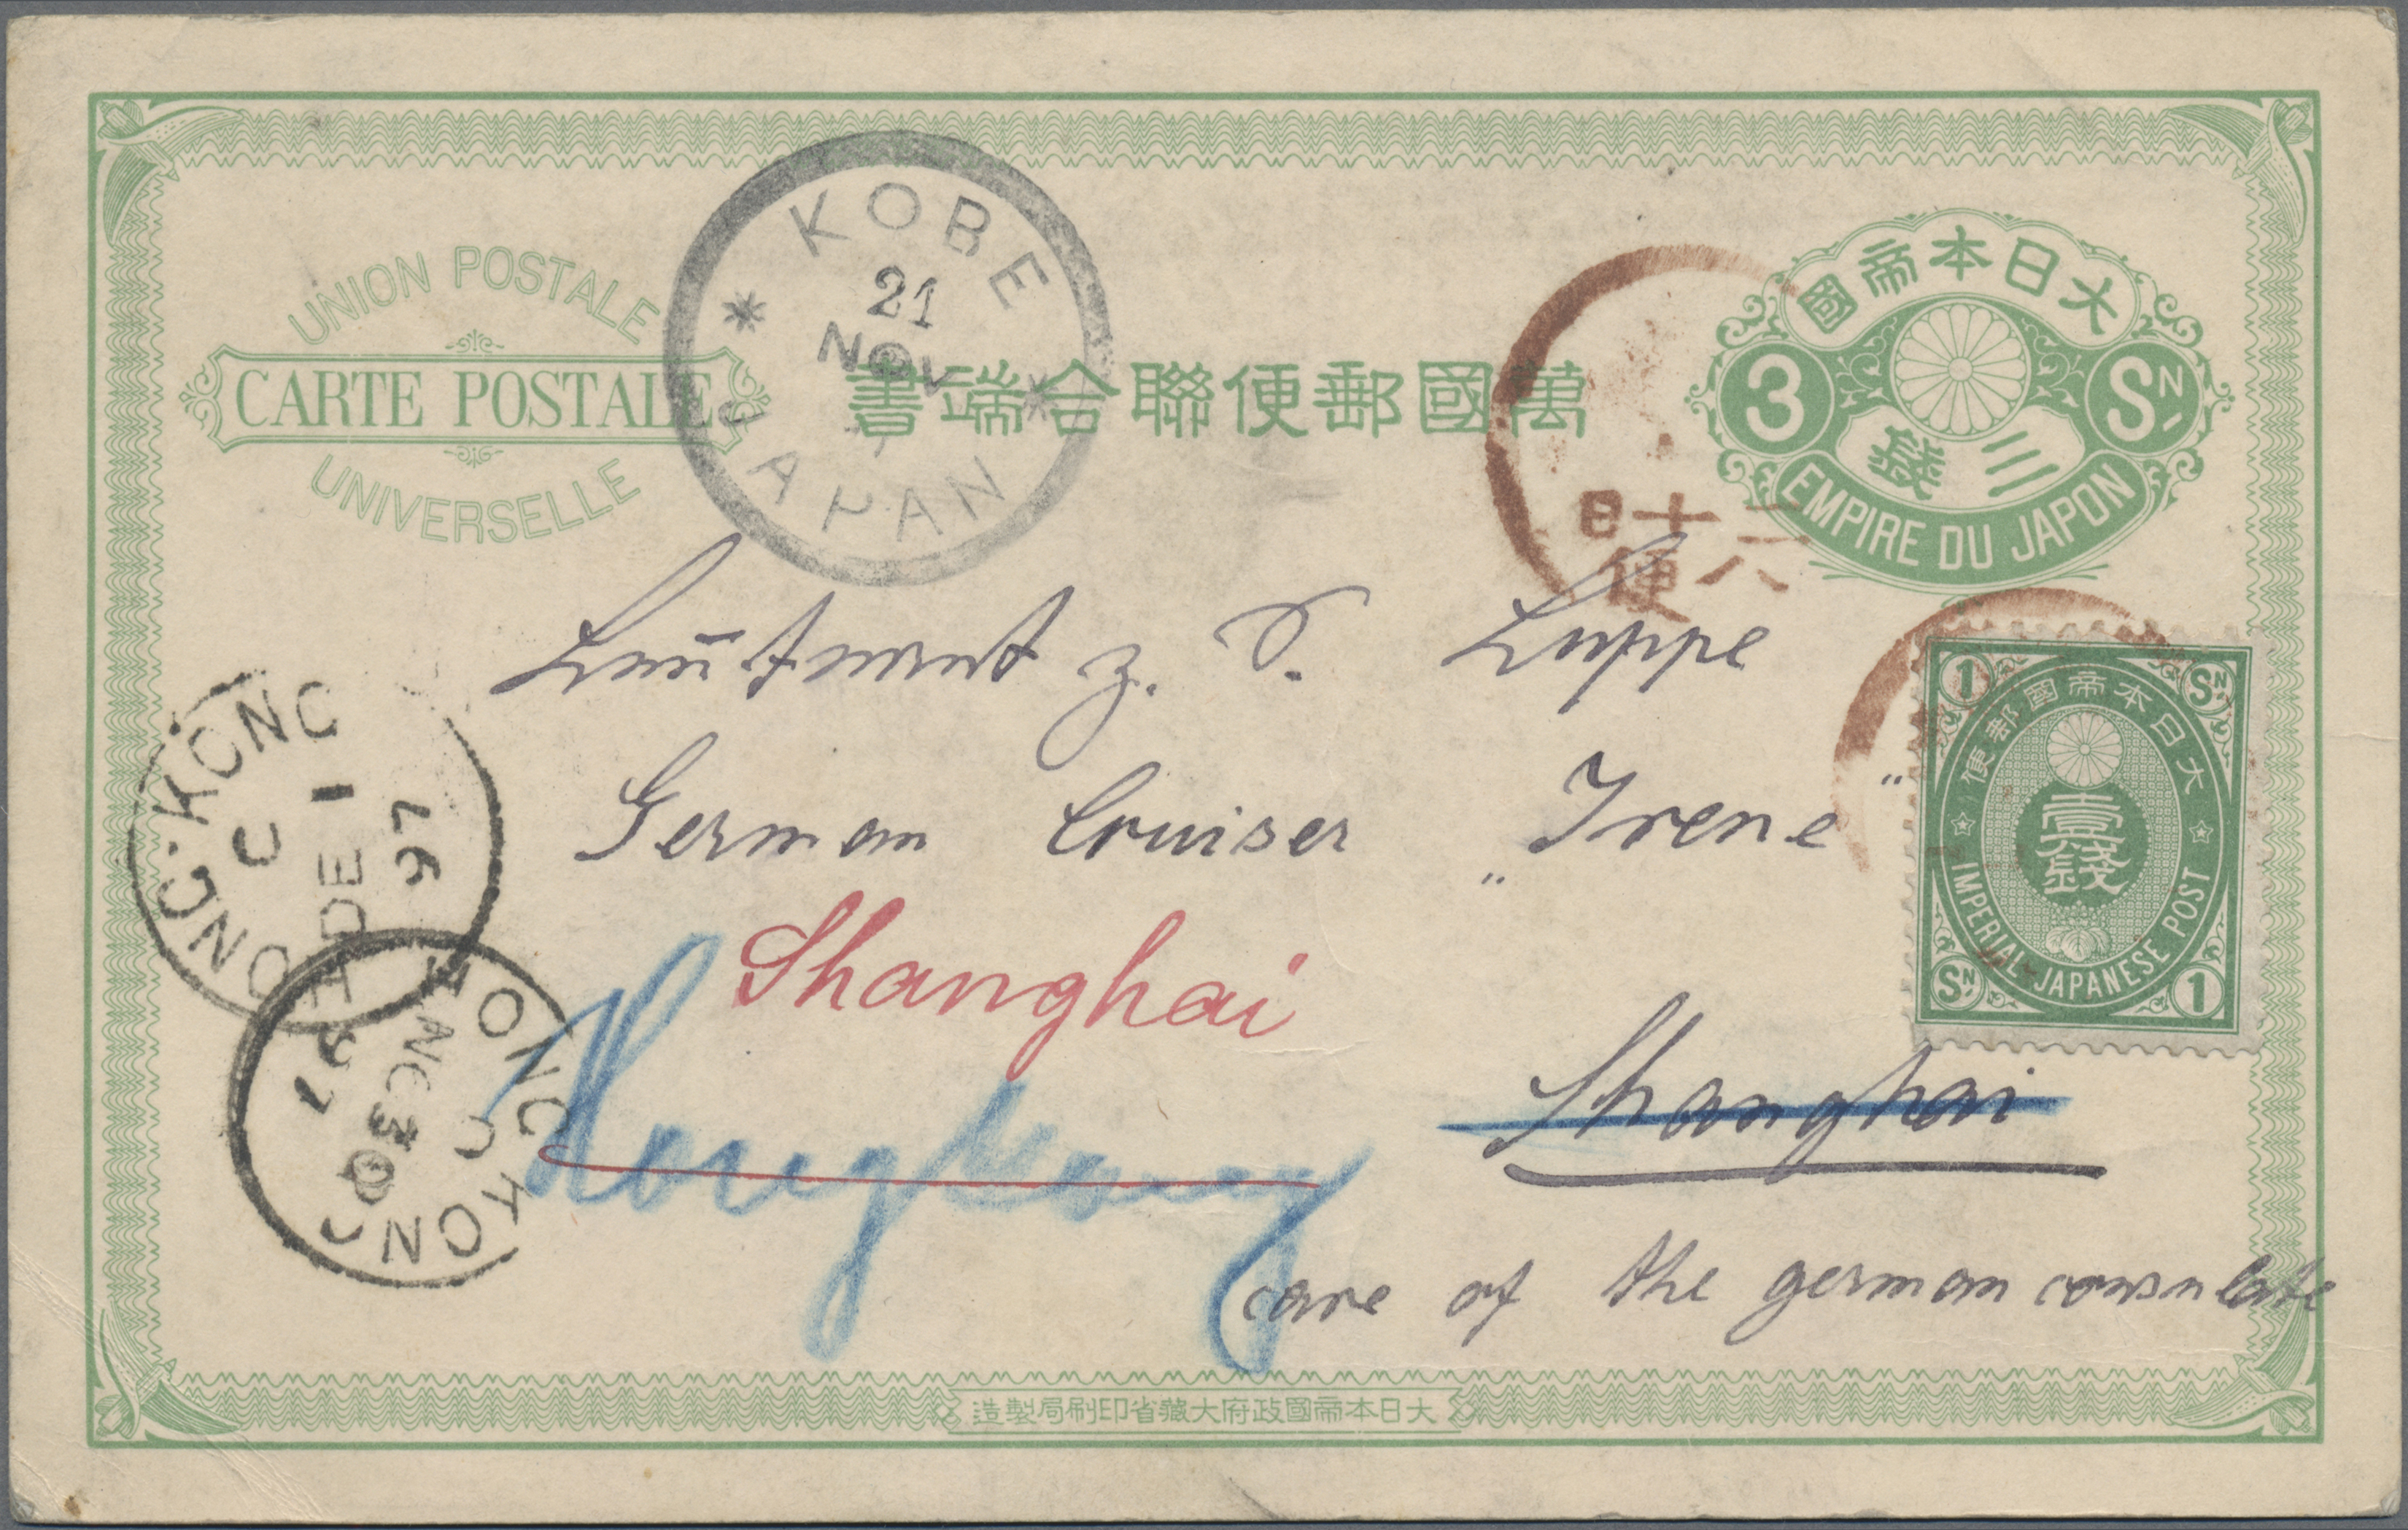 UNION POSTALE
CARTE POSTALE
UNIVERSELLE
KOBE
21
NOV
JAPAN
書端合聯便郵國萬
國帝本日大
3 SN
錢三
EMPIRE DU JAPON
日十六
便
1 SN
便郵國帝本日大
壹錢
IMPERIAL JAPANESE POST
SN 1
Leutnant z. S. Luppe
German Cruiser „Irene"
Shanghai
Hongkong
Shanghai
care of the german consulate
HONG·KONG
C
DE 1
97
HONG KONG
C
NO 30
97
造製局刷印省藏大府政國帝本日大